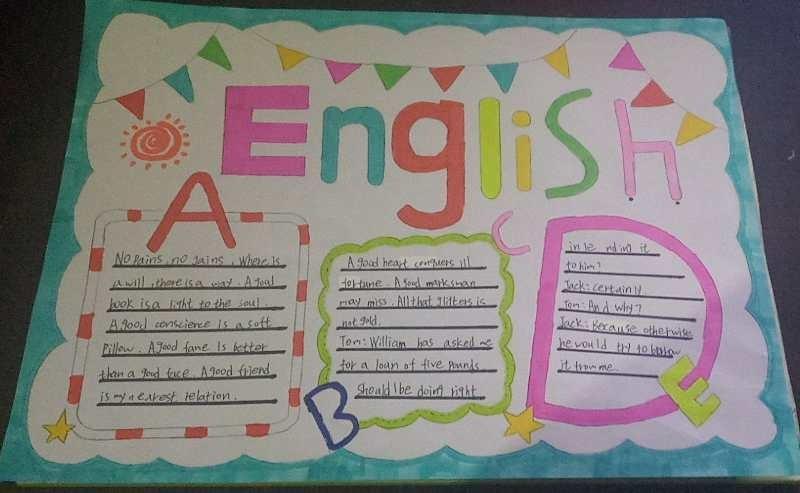 English
A
No pains, no gains. Where is
a will, there is a way. A good
book is a light to the soul.
A good conscience is a soft
Pillow. A good fane is better
than a good face. A good friend
is my nearest relation.
B
A good heart conquers ill
fortune. A good marksman
may miss. All that glitters is
not gold.
Tom: William has asked me
for a loan of five pounds.
Should I be doing right
C
D
in le nding it
to him?
Jack: certainly.
Tom: And why?
Jack: Because otherwise
he would try to
it from me.
E